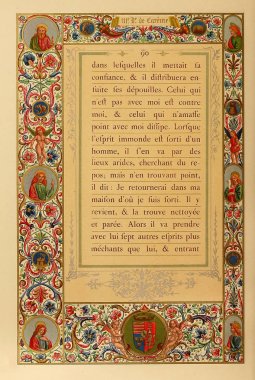 IIIᵉ Dᵉ de Carême
90
dans leſquelles il mettait ſa
confiance, & il diſtribuera en-
ſuite ſes dépouilles. Celui qui
n'eſt pas avec moi eſt contre
moi, & celui qui n'amaſſe
point avec moi diſſipe. Lorſque
l'eſprit immonde eſt ſorti d'un
homme, il ſ'en va par des
lieux arides, cherchant du re-
pos; mais n'en trouvant point,
il dit: Je retournerai dans ma
maiſon d'où je ſuis ſorti. Il y
revient, & la trouve nettoyée
et parée. Alors il va prendre
avec lui ſept autres eſprits plus
méchants que lui, & entrant